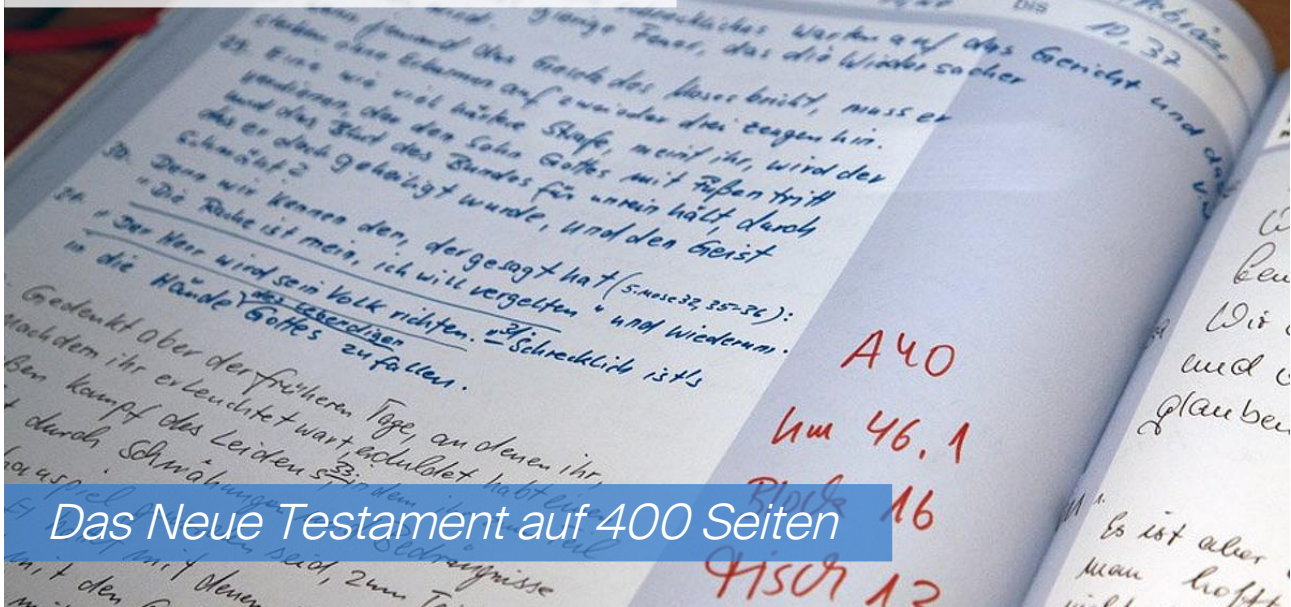 Hebräer
bis 10,37
schreckliches Warten auf das Gericht und das
gierige Feuer, das die Widersacher
Wenn jemand das Gesetz des Moses bricht, muss er
sterben ohne Erbarmen auf zwei oder drei Zeugen hin.
29. Eine wie viel härtere Strafe, meint ihr, wird der
verdienen, der den Sohn Gottes mit Füßen tritt
und das Blut des Bundes für unrein hält, durch
das er doch geheiligt wurde, und den Geist
schmäht?
30. Denn wir kennen den, der gesagt hat (5.Mose 32,35-36):
"Die Rache ist mein, ich will vergelten" und wiederum:
"Der Herr wird sein Volk richten." 31. Schrecklich ist's
in die Hände des lebendigen Gottes zu fallen.
Gedenkt aber der früheren Tage, an denen ihr,
nachdem ihr erleuchtet wart, erduldet habt einen
Kampf des Leidens, 33. indem
durch Schmähungen Bedrängnisse
seid, zum
mit denen
mit den
A40
km 46,1
Block 16
Tisch 12
Das Neue Testament auf 400 Seiten
Wir
und
glauben
Es ist aber
man hofft